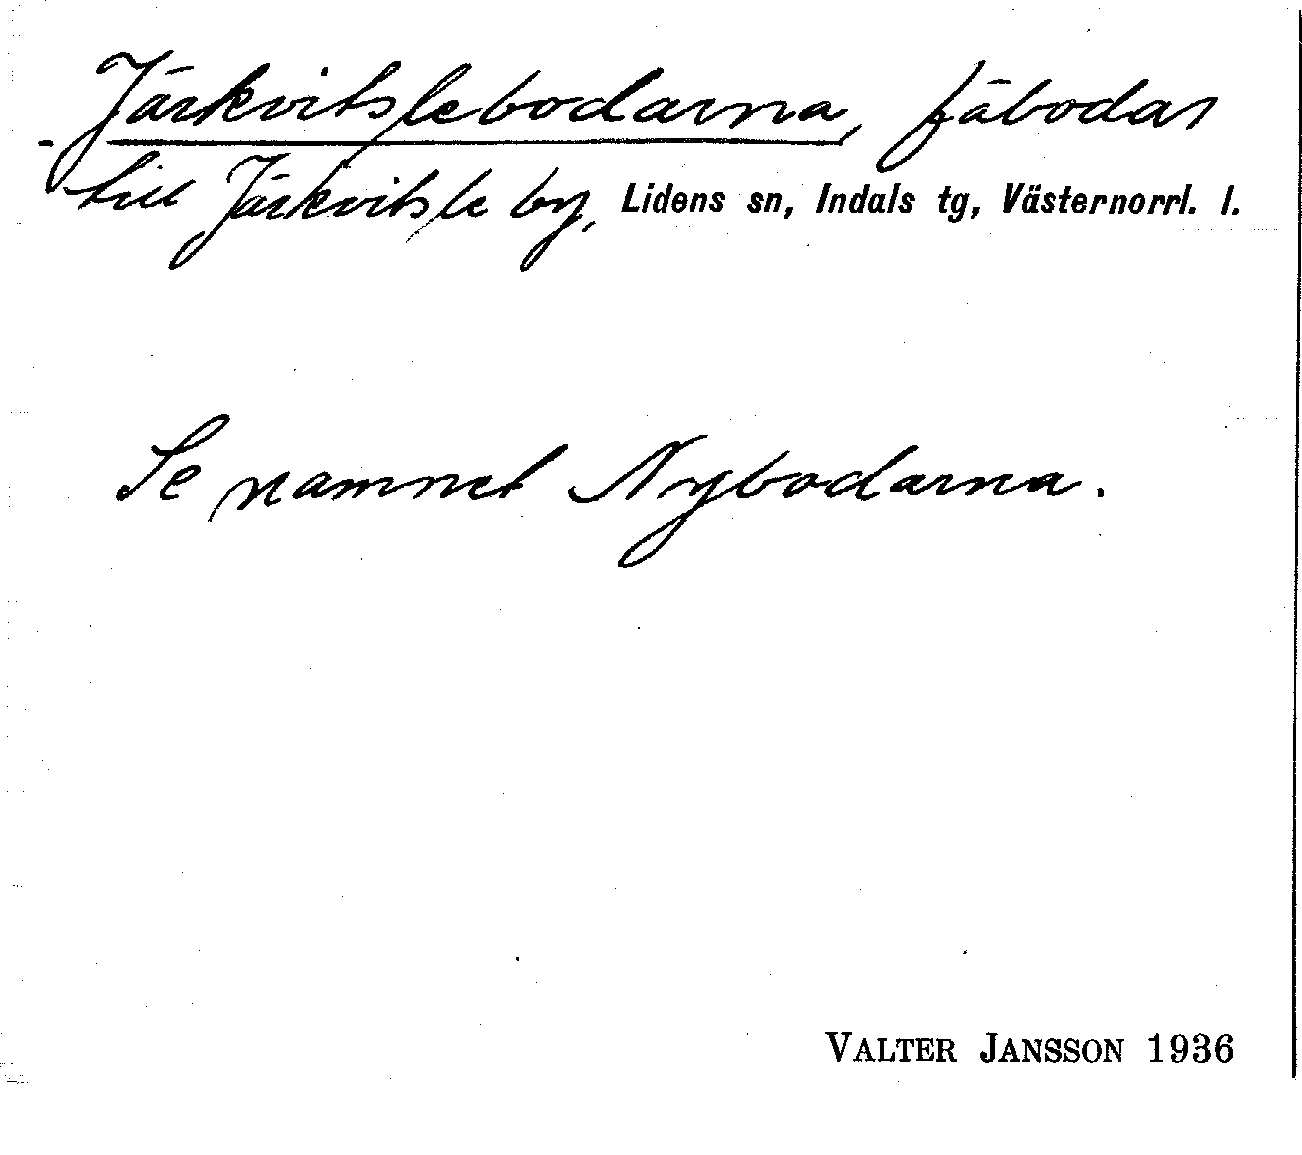 Järkvitslebodarna, fäbodar
till Järkvitsle by, Lidens sn, Indals tg, Västernorrl. l.
Se namnet Nybodarna.
VALTER JANSSON 1936